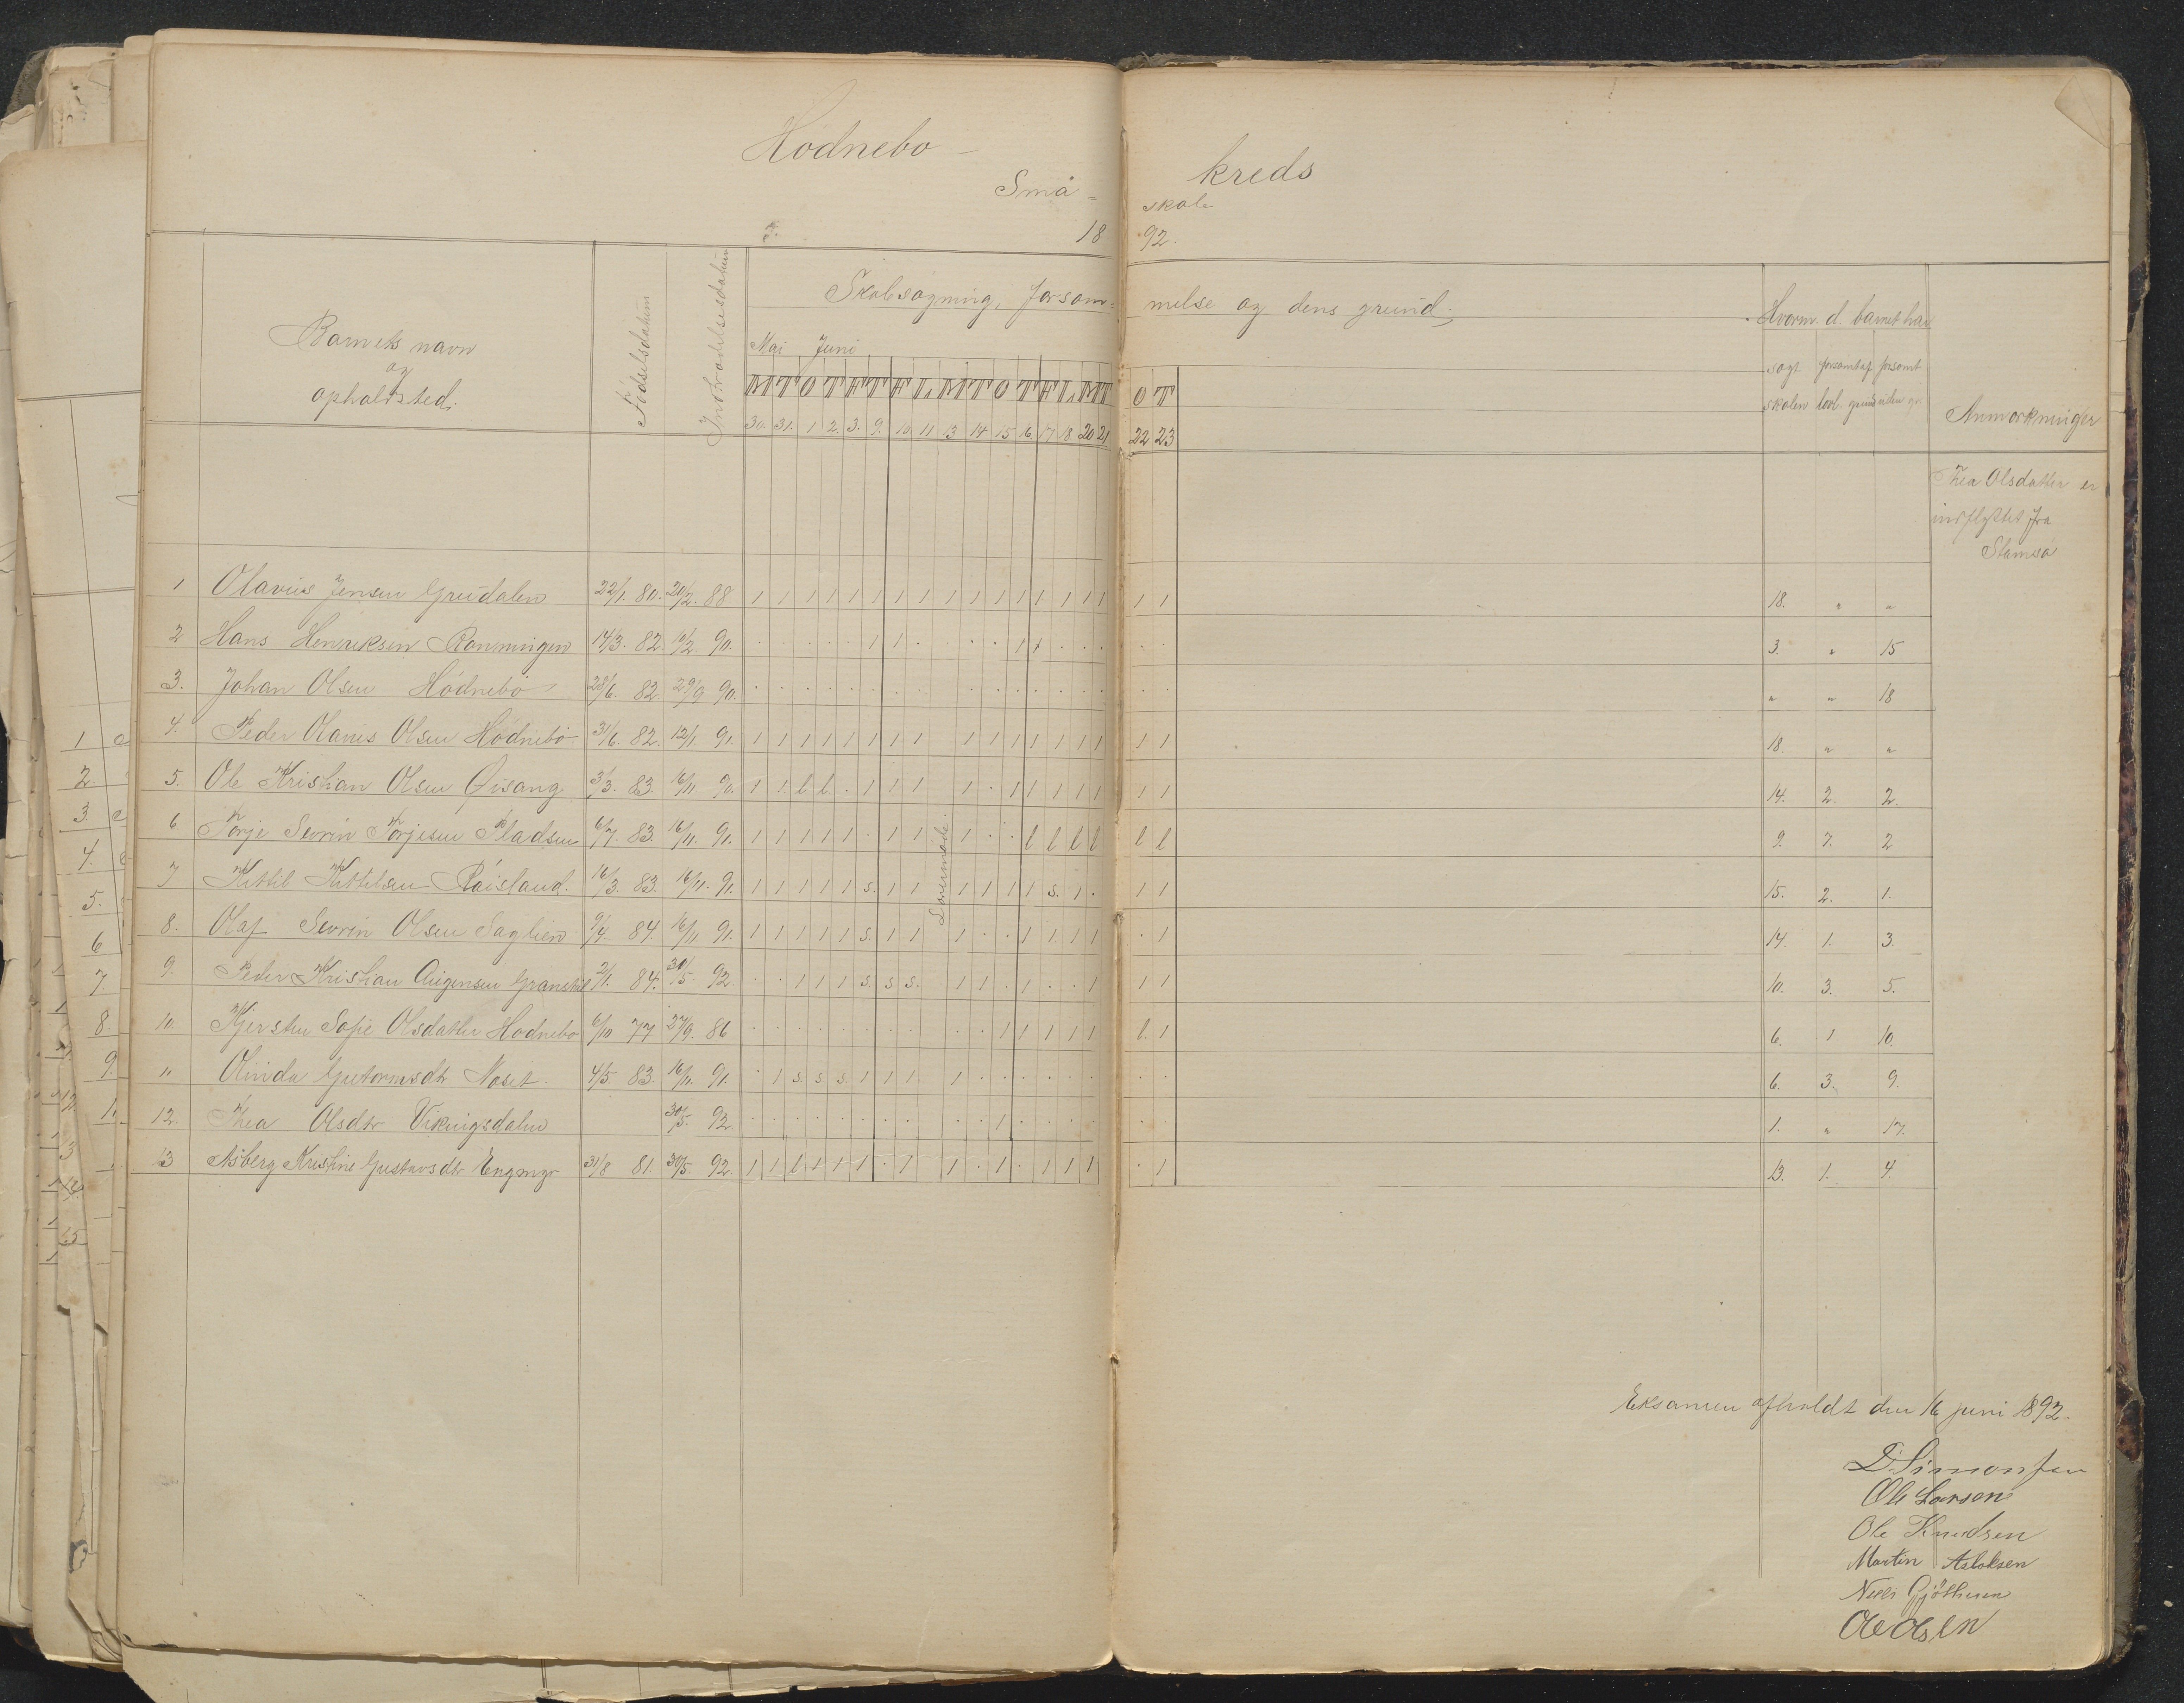 Hödnebo - kreds
Små - skole
18 92.
Barnets navn og opholdsted.
Födselsdatum
Indtrædelsesdatum
Skolesøgning, forsøm- melse og dens grund.
Hvorm. d. barnet har
søgt skolen
forsømt af lovl. grund
forsømt uden gr.
Anmærkninger
Mai Juni
M T O T F T F L M T O T F L M T O T
30. 31. 1 2. 3. 9. 10 11 13 14 15 16. 17 18. 20 21 22 23
Thea Olsdatter er
indflyttet fra
Stamsø
1 Olavus Jensen Greidalen 22/1. 80. 20/2. 88 1 1 1 1 1 1 1 1 1 1 1 1 1 1 1 1 1 1 18. " "
2 Hans Henriksen Rönningen 14/3. 82 10/2. 90. . . . . . 1 1 . . . . 1 1 . . . . . 3. " 15
3. Johan Olsen Hödnebö 28/6. 82. 29/9 90. . . . . . . . . . . . . . . . . . . " " 18
4. Peder Olaves Olsen Hödnebö 31/6. 82. 12/1. 91. 1 1 1 1 1 1 1 1 1 1 1 1 1 1 1 1 1 18. " "
5. Ole Kristian Olsen Øisang 3/3. 83. 16/11 90. 1 1. l l. . 1 1 1 1 . 1 1 1 1 1 1 1 14. 2. 2.
6. Torje Sevrin Torjesen Pladsen 6/7. 83. 16/11. 91. 1 1 1 1 1 . 1 1 1 . . l l l l l l 9. 7. 2
7 Kittil Kittilsen Röisland. 16/3. 83. 16/11. 91. 1 1 1 1 1 s. 1 1 1 1 1 1 s. 1 . 1 1 15. 2. 1.
8. Olaf Sevrin Olsen Saglien 9/4. 84. 16/11 91. 1 1 1 1 1 s. 1 1 1 . . 1 1 1 1 . 1 14. 1. 3.
9. Peder Kristian Augensen Granstöl 2/1. 84. 30/5. 92. . . 1 1 1 s. s s. 1 1 . 1 . . 1 1 1 10. 3. 5.
10. Kjersten Sofie Olsdatter Hödnebo 6/10 77 27/9. 86 . . . . . . . . . . 1 1 1 1 1 l. 1 6. 1 10.
11 Olinda Gutormsdtr Næset. 4/5 83. 16/11. 91. . 1 s. s. s. 1 1 1. 1 . . . . . . . . 6. 3. 9.
12. Thea Olsdtr Vikingsdalen 30/5. 92. . . . . . . . . . . 1 . . . . . . 1. " 17.
13 Asberg Kristine Gustavsdtr Engmyr 31/8 81. 30/5. 92. 1 1 l 1 1 1 . 1 1 . 1 . 1 1 1 . 1 13. 1. 4.
Lærermöde.
Eksamen afholdt den 16 juni 1892.
D. Simonsen
Ole Larsen
Ole Knudsen
Martin Aslaksen
Ole Olsen